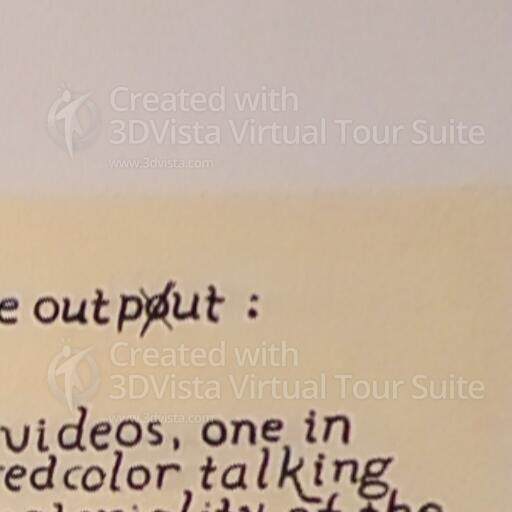 Created with
3DVista Virtual Tour Suite
www.3dvista.com
e output :
Created with
3DVista Virtual Tour Suite
www.3dvista.com
videos, one in
redcolor talking
of the